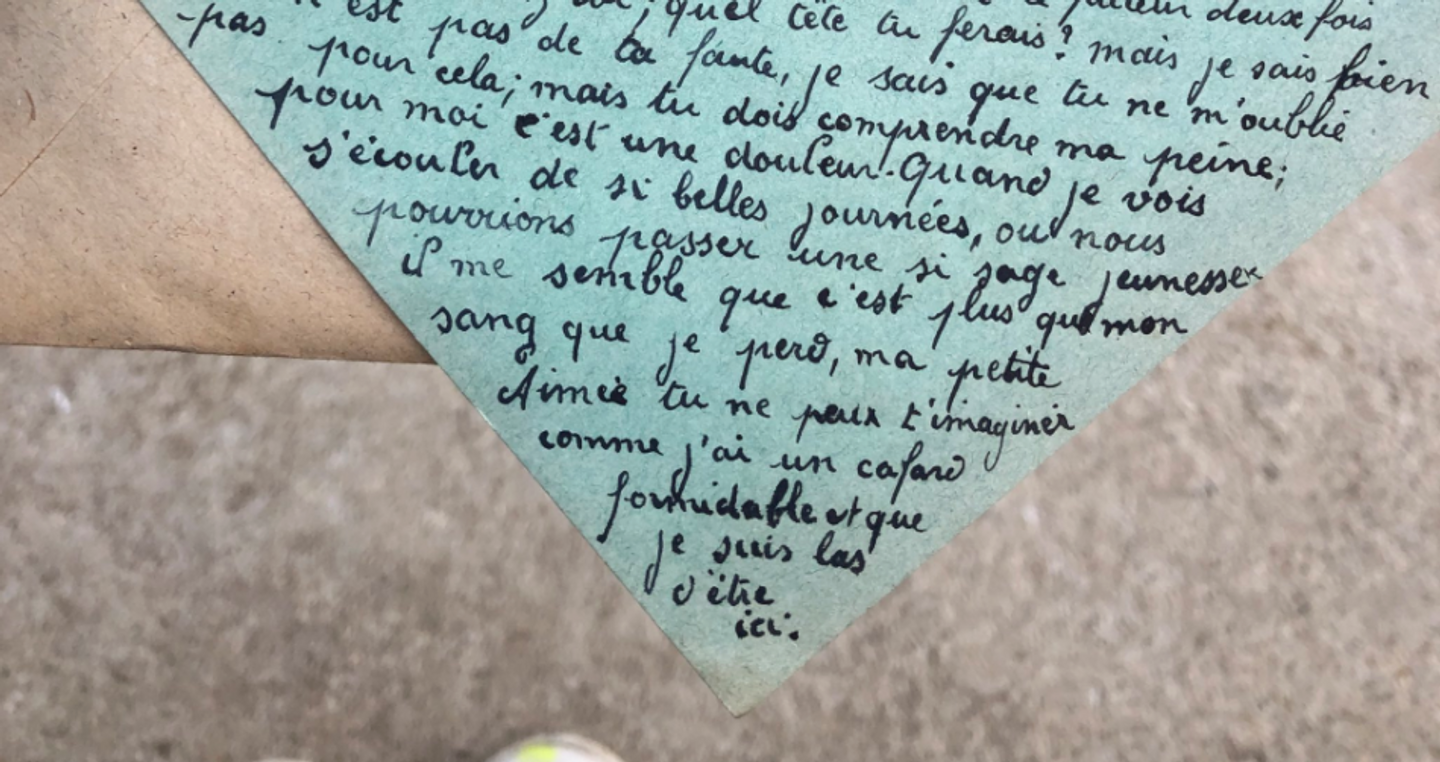 quel tête tu ferais? mais je sais bien
est pas de ta faute, je sais que tu ne m'oublie
pas pour cela; mais tu dois comprendre ma peine;
pour moi c'est une douleur. Quand je vois
s'écouler de si belles journées, ou nous
pourrions passer une si sage jeunesse
il me semble que c'est plus que mon
sang que je perd, ma petite
Aimée tu ne peux t'imaginer
comme j'ai un cafard
formidable et que
je suis las
d'être
ici.